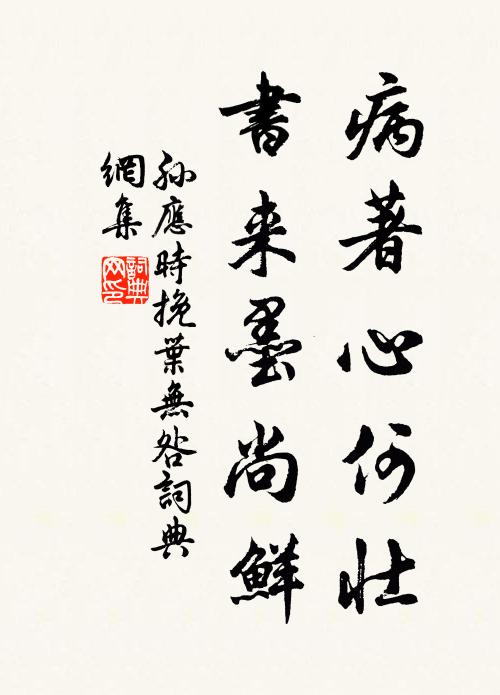 病著心何壯
書来墨尚鮮
孙應時挽葉無咎詞典
網集
詞典
网印